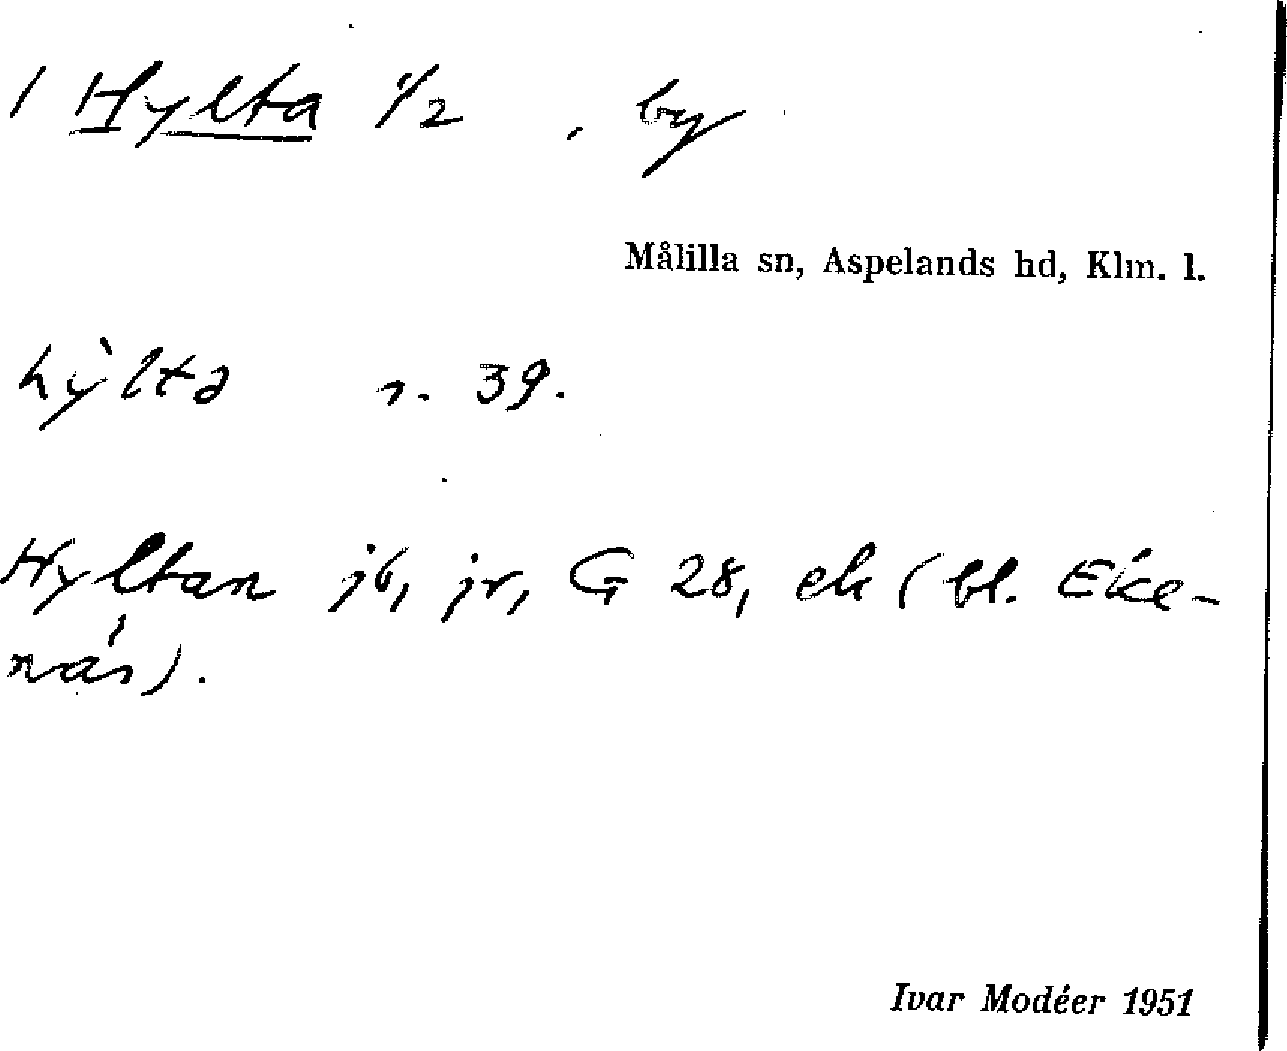 1 Hylta 1/2 , by
Målilla sn, Aspelands hd, Klm. l.
hỳlta s. 39.
Hyltan jb, jr, G 28, ek (bl. Eke-
näs).
Ivar Modéer 1951